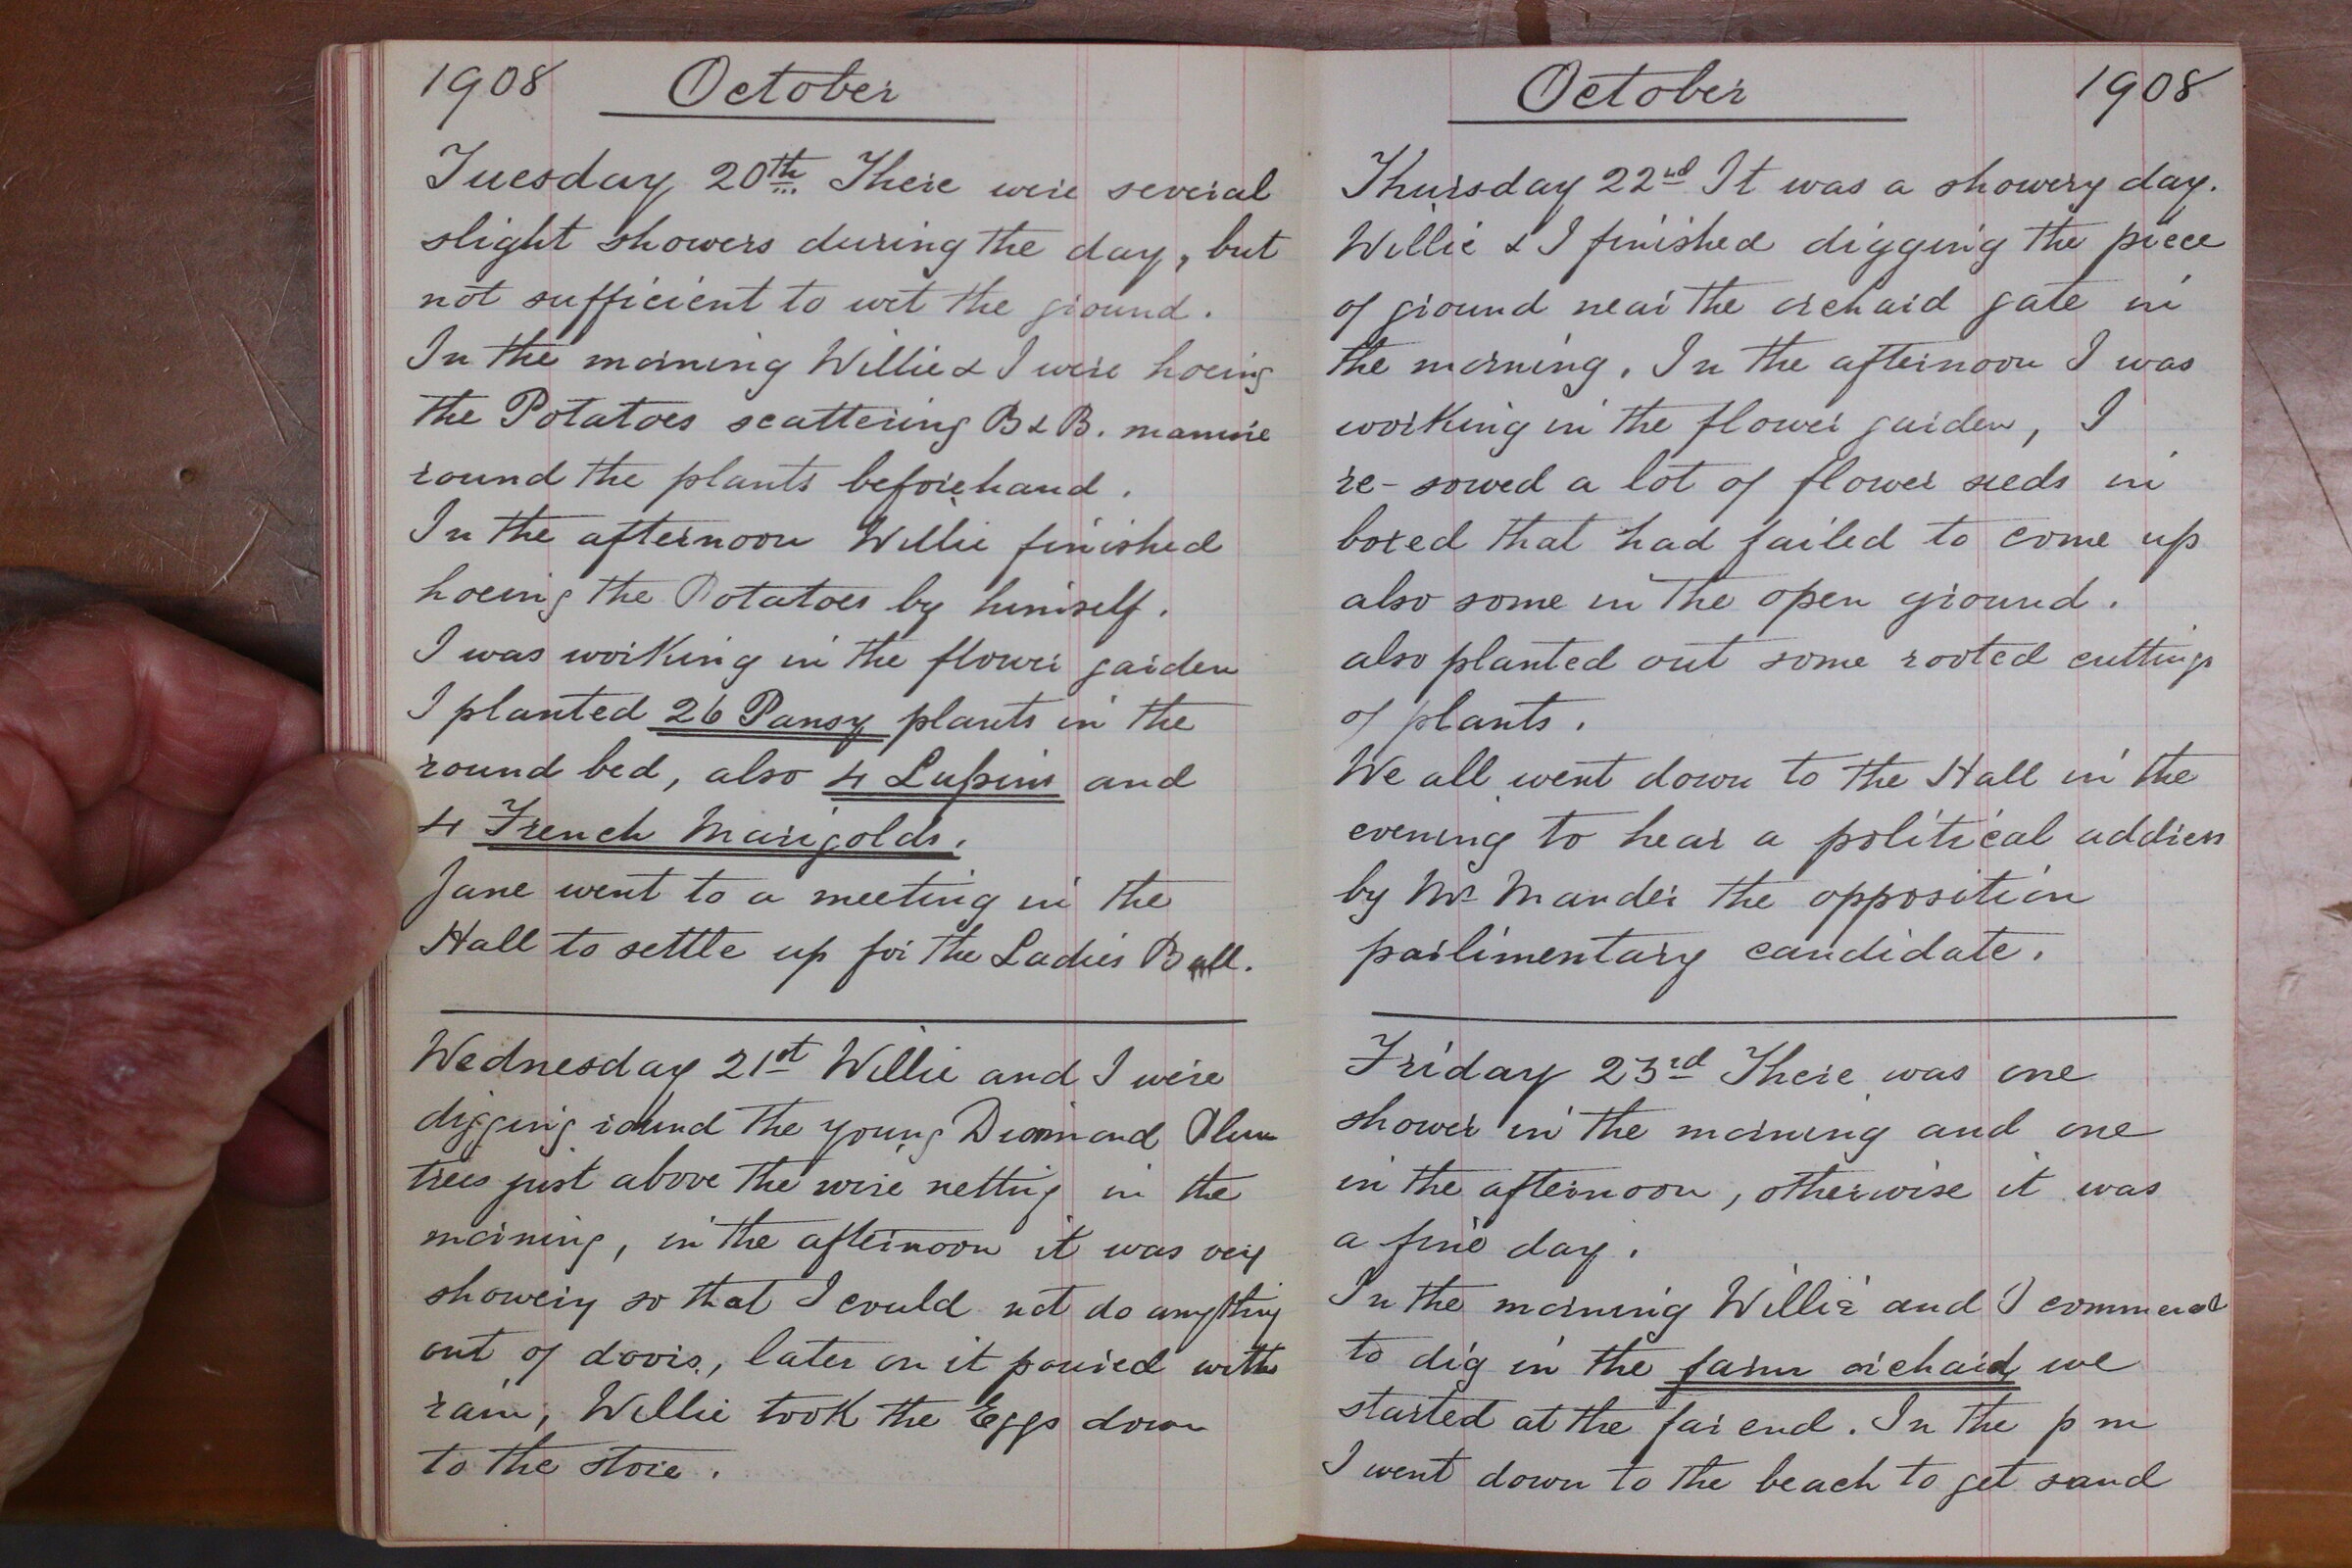 1908 October
Tuesday 20th There were several
slight showers during the day, but
not sufficient to wet the ground.
In the morning Willie & I were hoeing
the Potatoes scattering B & B. manure
round the plants beforehand.
In the afternoon Willie finished
hoeing the Potatoes by himself.
I was working in the flower garden
I planted 26 Pansy plants in the
round bed, also 4 Lupins and
4 French Marigolds.
Jane went to a meeting in the
Hall to settle up for the Ladies Ball.
Wednesday 21st Willie and I were
digging round the young Diamond Plum
trees just above the wire netting in the
morning, in the afternoon it was very
showery so that I could not do anything
out of doors, later on it poured with
rain, Willie took the Eggs down
to the store.
October 1908
Thursday 22nd It was a showery day.
Willie & I finished digging the piece
of ground near the orchard gate in
the morning. In the afternoon I was
working in the flower garden, I
re-sowed a lot of flower seeds in
boxed that had failed to come up
also some in the open ground.
also planted out some rooted cuttings
of plants.
We all went down to the Hall in the
evening to hear a political address
by Mr Mander the opposition
parlimentary candidate.
Friday 23rd There was one
shower in the morning and one
in the afternoon, otherwise it was
a fine day.
In the morning Willie and I commenced
to dig in the farm orchard, we
started at the far end. In the p m
I went down to the beach to get sand